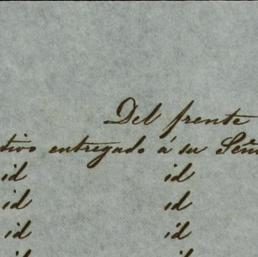 Del frente
tivo entregado á su Señ
id id
id id
id id
id id